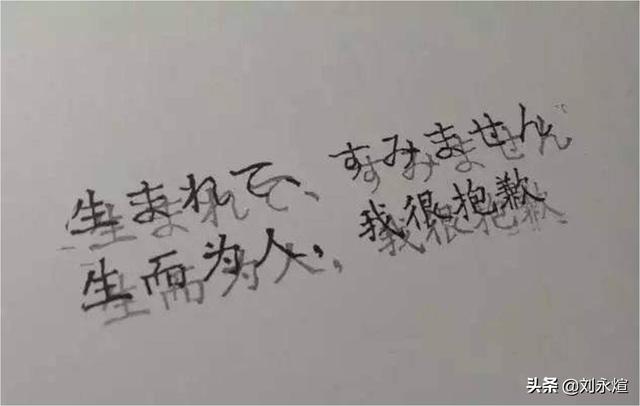 生まれて、すみません
生而为人，我很抱歉
头条 @刘永煊